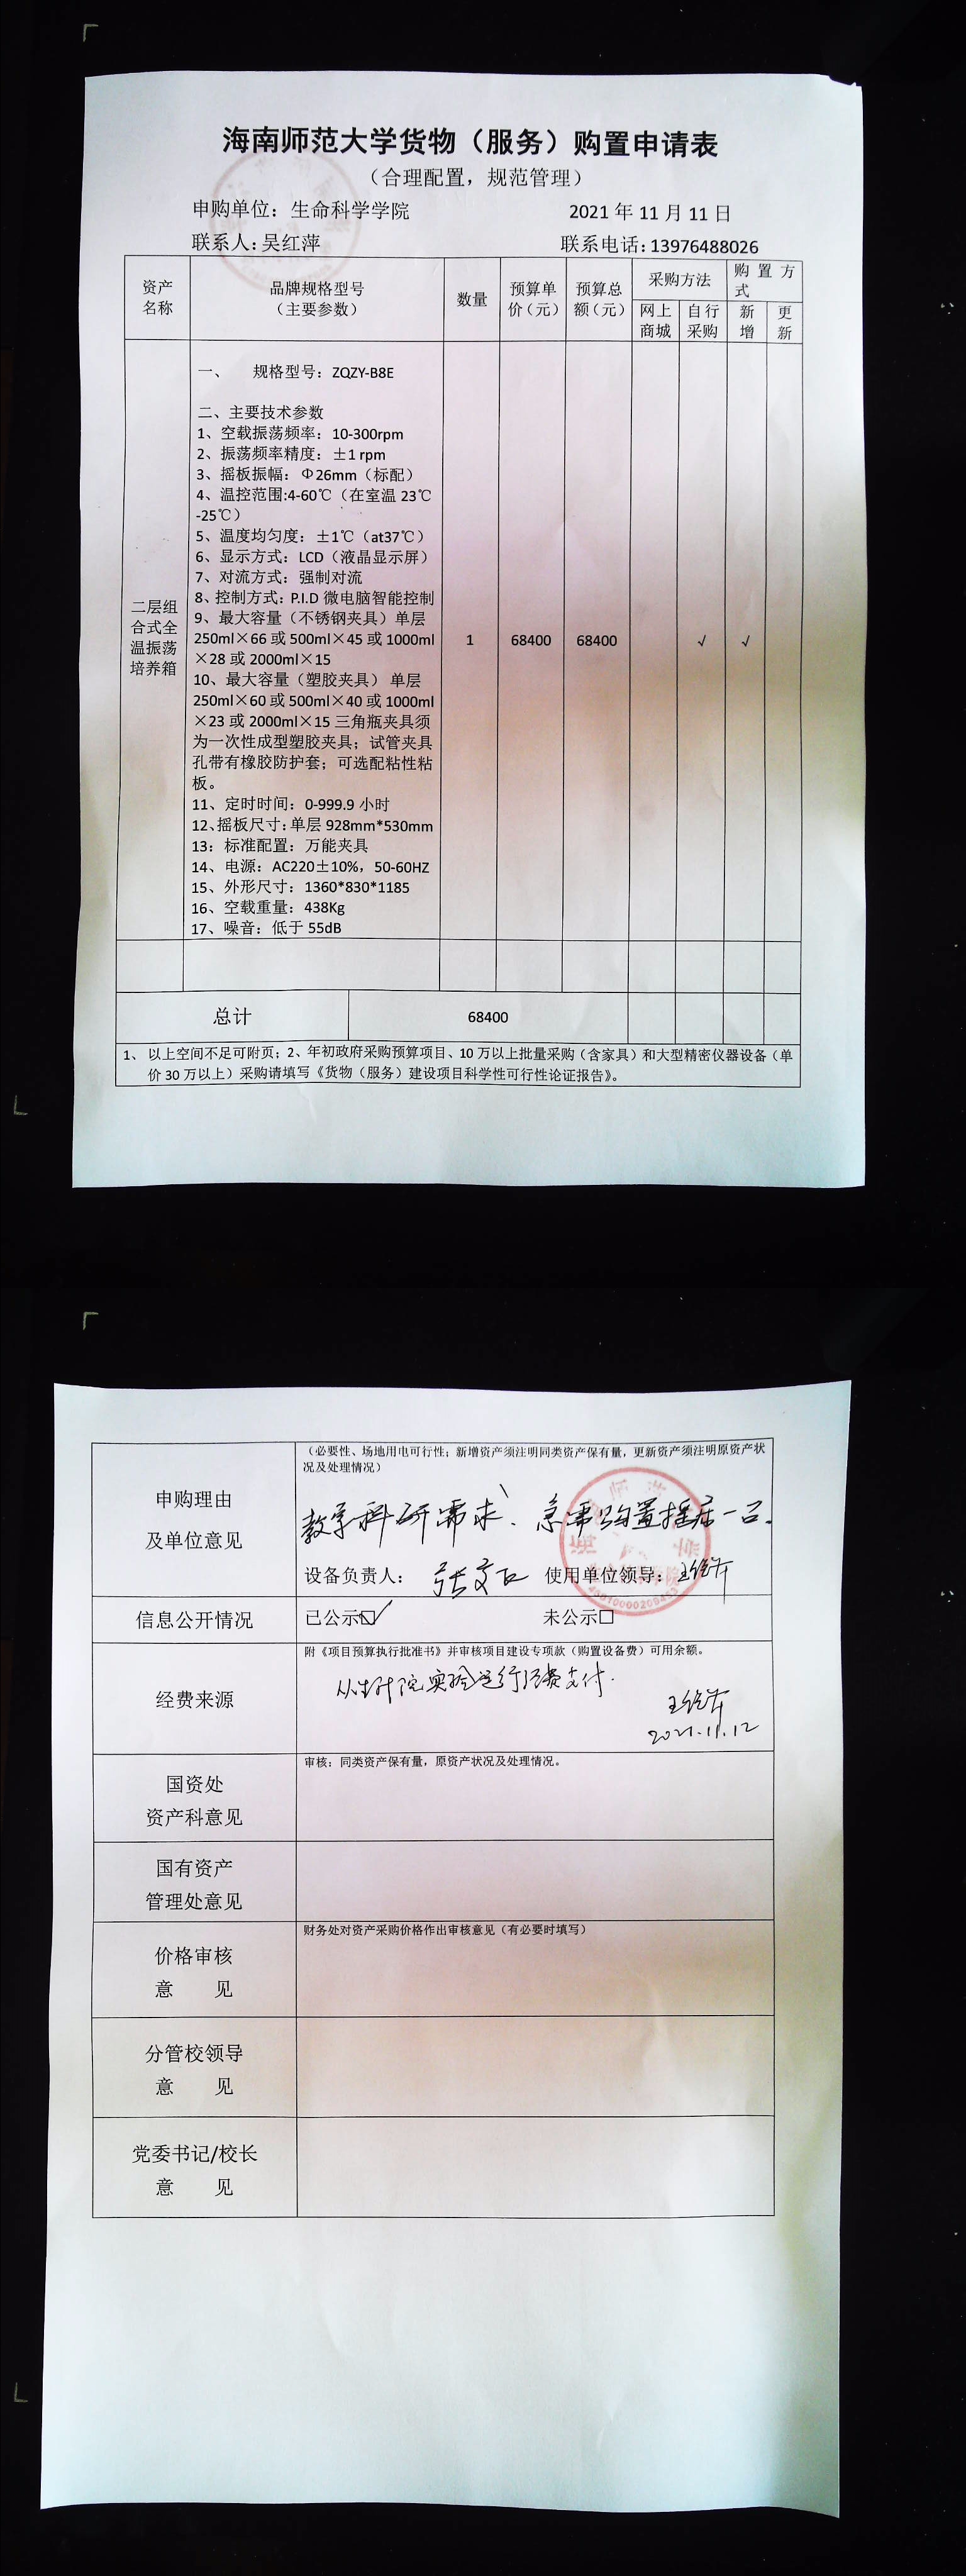 海南师范大学货物（服务）购置申请表
（合理配置，规范管理）
申购单位：生命科学学院 2021年11月11日
联系人：吴红萍 联系电话：13976488026
资产名称 品牌规格型号（主要参数） 数量 预算单价（元） 预算总额（元） 采购方法 购置方式
网上商城 自行采购 新增 更新
一、 规格型号：ZQZY-B8E
二、主要技术参数
1、空载振荡频率：10-300rpm
2、振荡频率精度：±1 rpm
3、摇板振幅：Φ26mm（标配）
4、温控范围:4-60℃（在室温 23℃
-25℃）
5、温度均匀度：±1℃（at37℃）
6、显示方式：LCD（液晶显示屏）
7、对流方式：强制对流
8、控制方式：P.I.D 微电脑智能控制
9、最大容量（不锈钢夹具）单层
250ml×66 或 500ml×45 或 1000ml
×28 或 2000ml×15
10、最大容量（塑胶夹具） 单层
250ml×60 或 500ml×40 或 1000ml
×23 或 2000ml×15 三角瓶夹具须
为一次性成型塑胶夹具；试管夹具
孔带有橡胶防护套；可选配粘性粘
板。
11、定时时间：0-999.9 小时
12、摇板尺寸：单层 928mm*530mm
13：标准配置：万能夹具
14、电源：AC220±10%，50-60HZ
15、外形尺寸：1360*830*1185
16、空载重量：438Kg
17、噪音：低于 55dB
二层组合式全温振荡培养箱 1 68400 68400 √ √
总计 68400
1、 以上空间不足可附页；2、年初政府采购预算项目、10 万以上批量采购（含家具）和大型精密仪器设备（单
价 30 万以上）采购请填写《货物（服务）建设项目科学性可行性论证报告》。
申购理由
及单位意见
（必要性、场地用电可行性；新增资产须注明同类资产保有量，更新资产须注明原资产状
况及处理情况）
教学科研需求、急需购置摇床一台.
设备负责人： 使用单位领导：
信息公开情况 已公示☑ 未公示□
经费来源
附《项目预算执行批准书》并审核项目建设专项款（购置设备费）可用余额。
从生科院实验运行经费支付.
2021.11.12
国资处
资产科意见
审核：同类资产保有量，原资产状况及处理情况。
国有资产
管理处意见
价格审核
意 见
财务处对资产采购价格作出审核意见（有必要时填写）
分管校领导
意 见
党委书记/校长
意 见